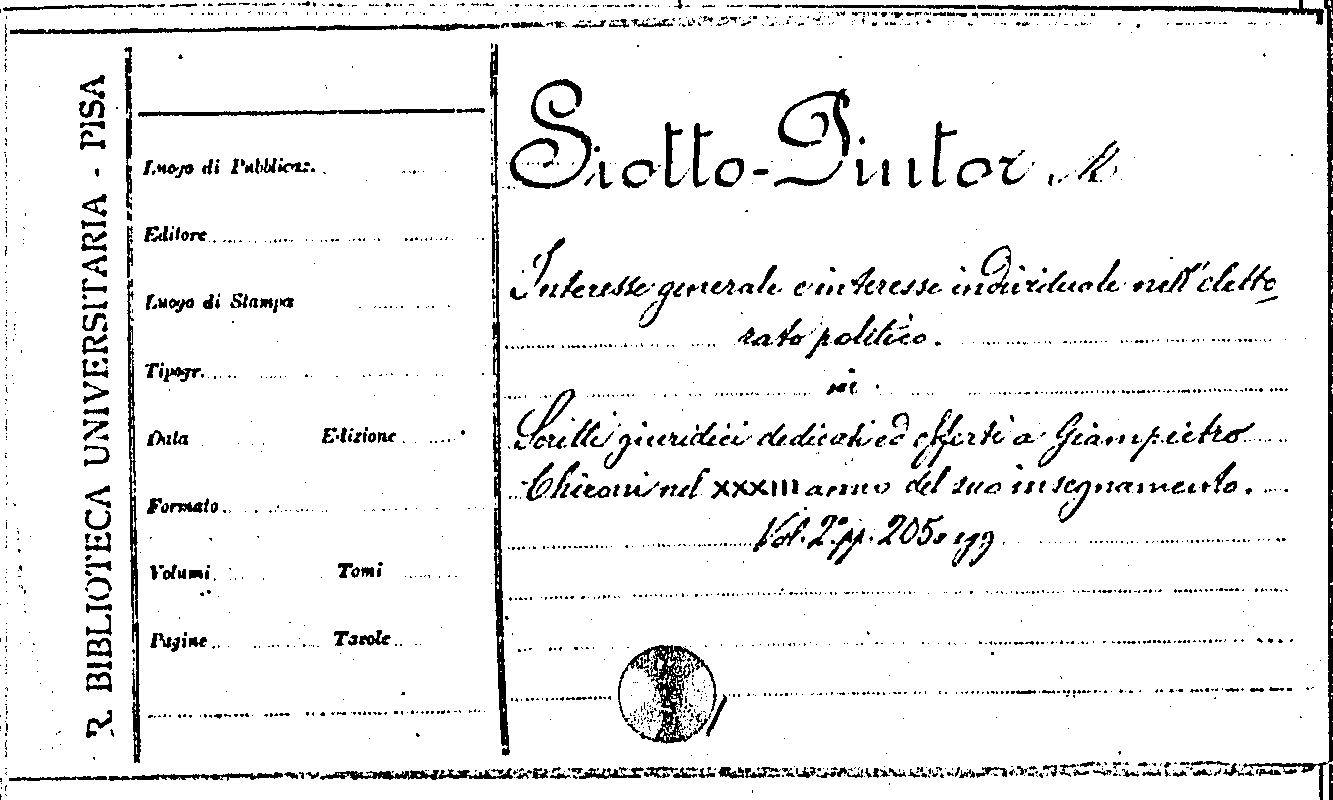 R. BIBLIOTECA UNIVERSITARIA - PISA
Luogo di Pubblicaz.
Editore
Luogo di Stampa
Tipogr.
Data Edizione
Formato
Volumi Tomi
Pagine Tavole
Siotto-Pintor M.
Interesse generale e interesse individuale nell'eletto
rato politico.
in
Scritti giuridici dedicati ed offerti a Giampietro
Chironi nel XXXIII anno del suo insegnamento.
Vol. 2º pp. 205 e sgg